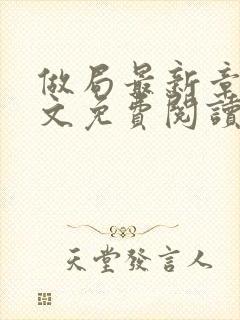 做局最新章
文免費閱讀
天堂發言人